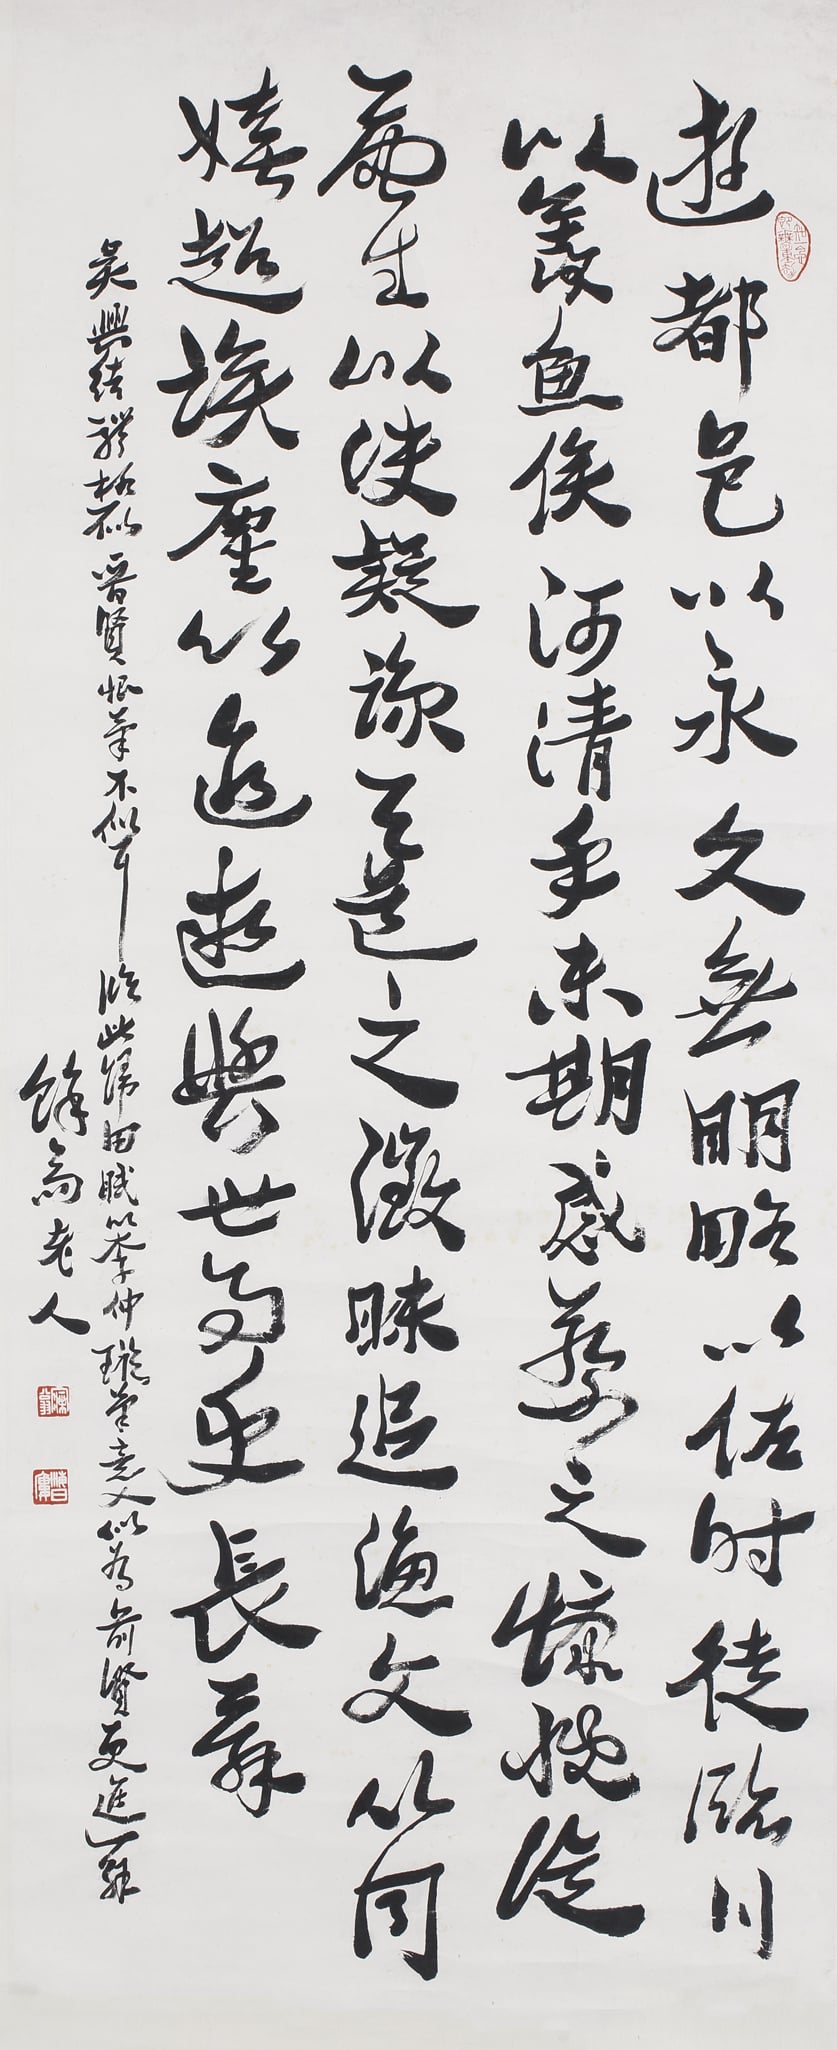 遊都邑以永久無明略以佐時徒臨川
以羨魚俟河清乎未期感蔡之慷慨從
唐生以決疑諒天道之微昧追漁父以同
嬉超埃塵以遐遊與世事乎長辭
吳興結體極似晉賢恨筆不似耳臨此歸田賦以李仲璇筆意又似為前賢更進一解
餘齋老人